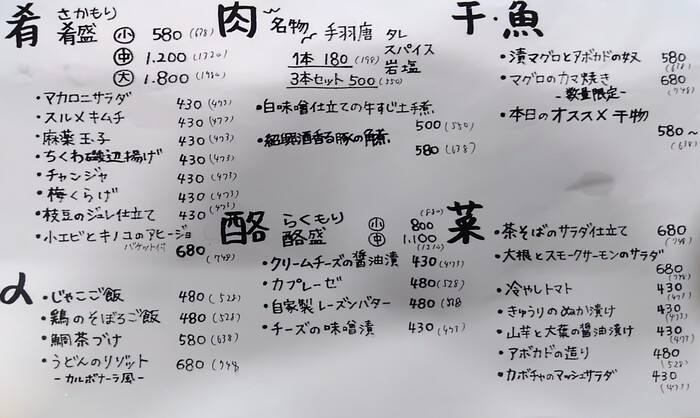 肴 さかもり
肴盛 小 580 (638)
中 1.200 (1320)
大 1.800 (1980)
・マカロニサラダ 430 (473)
・スルメキムチ 430 (473)
・麻薬玉子 430 (473)
・ちくわ磯辺揚げ 430 (473)
・チャンジャ 430 (473)
・梅くらげ 430 (473)
・枝豆のジュレ仕立て 430 (473)
・小エビとキノコのアヒージョ
バケット付 680 (748)
・じゃこご飯 480 (528)
・鶏のそぼろご飯 480 (528)
・鯛茶づけ 580 (638)
・うどんのリゾット 680 (748
-カルボナーラ風-
肉 名物 手羽唐 タレ
スパイス
岩塩
1本 180 (198)
3本セット 500 (550)
・白味噌仕立ての牛すじ土手煮
500 (550)
・紹興酒香る豚の角煮
580 (638)
酪 らくもり
酪盛 小 800 (880)
中 1.100 (1210)
・クリームチーズの醤油漬 430 (473)
・カプレーゼ 480 (528)
・自家製レーズンバター 480 (528
・チーズの味噌漬 430 (473)
干・魚
・漬マグロとアボカドの奴 580 (638)
・マグロのカマ焼き 680 (748)
-数量限定-
・本日のオススメ干物
580~ (638)
菜
・茶そばのサラダ仕立て 680 (748)
・大根とスモークサーモンのサラダ
680 (748)
・冷やしトマト 430 (473)
・きゅうりのぬか漬け 430 (473)
・山芋と大葉の醤油漬け 430 (473)
・アボカドの造り 480 (528)
・カボチャのマッシュサラダ 430 (473)